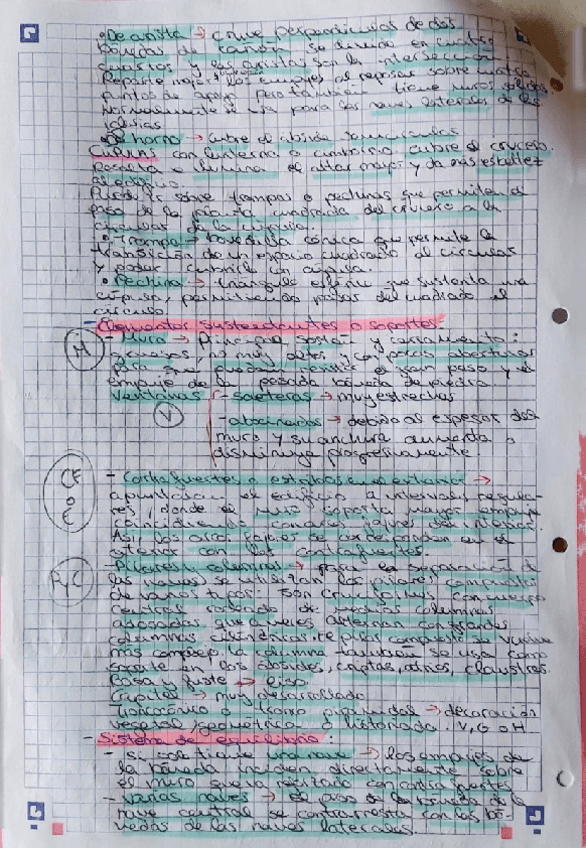 • De arista → cruce perpendicular de dos
bóvedas de cañón. Se divide en cuatro
y las aristas son la intersección
Reparte mejor los al reposar sobre cuatro
puntos de apoyo pero también tiene muros sólidos
Normalmente se usa para las naves laterales de las
iglesias
• De horno → cubre el ábside semicircular
Cúpulas con linterna o cimborrio cubre el crucero.
Resalta e ilumina el altar mayor y da más esbeltez
al edificio.
sobre trompas o pechinas que permiten el
paso de la planta cuadrada del crucero a la
circular de la cúpula.
• Trompa → bovedilla cónica que permite la
transición de un espacio cuadrado al circular
y poder cubrirle con cúpula.
• Pechina → triángulo esférico que sustenta una
cúpula, permitiendo pasar del cuadrado al
círculo.
- Elementos sustentantes o soportes:
M
- Muro → Principal sostén y cerramiento:
gruesos, no muy altos y con pocas aberturas
para que puedan resistir el gran peso y el
empuje de la pesada bóveda de piedra
Ventanas - saeteras → muy estrechas
V
- abocinadas → debido al espesor del
muro y su anchura aumenta o
disminuye progresivamente.
CE
o
E
- Contrafuertes o estribos en el exterior →
apuntalan el edificio a intervalos regula-
res, donde el muro soporta mayor empuje
coincidiendo con los fajones del interior.
Así los arcos fajones se corresponden en el
exterior con los contrafuertes.
P y C
- Pilares y columnas → para la separación de
las naves se utilizan los pilares compuestos
de varios tipos: son cruciformes, con núcleo
central rodeado de medias columnas
adosadas que a veces alternan con
columnas cilíndricas. El pilar compuesto se vuelve
más complejo, la columna también se usa como
soporte en los ábsides, criptas, atrios, claustros.
Basa y fuste → liso.
Capitel → muy desarrollado
Troncocónico o tronco → decoración
vegetal, geométrica o historiada: V, G o H.
- Sistema de equilibrio:
- Si solo tiene una nave → los empujes de
la bóveda inciden directamente sobre
el muro que va reforzado con contrafuertes
- Varias naves → el peso de la bóveda de la
nave central se contrarresta con las bó-
vedas de las naves laterales.